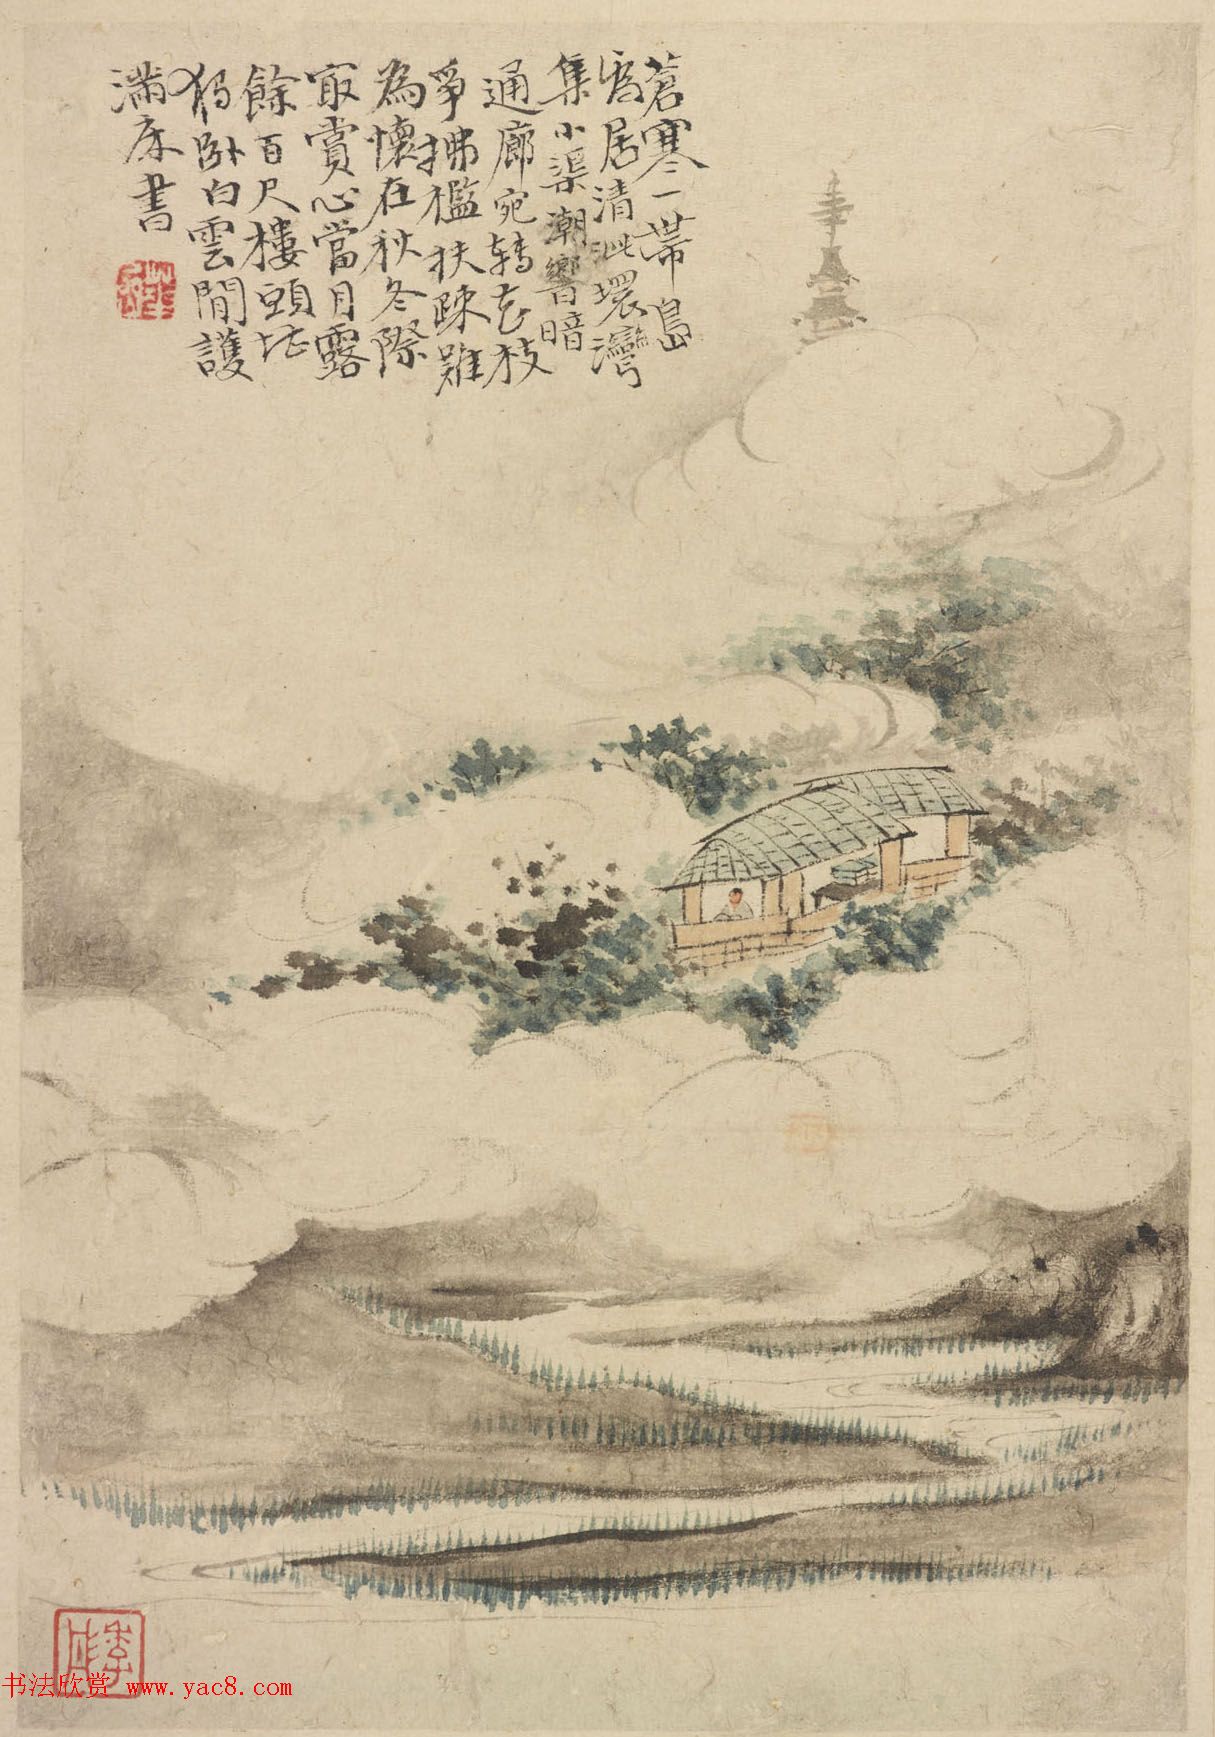 蒼寒一帶島
為居清此環灣
集小渠潮響暗
通廊宛轉花枝
爭拂檻扶疎雖
為懷在秋冬際
寂賞心當月露
餘百尺樓頭堪
獨臥白雲閒護
滿床書
书法欣赏 www.yac8.com